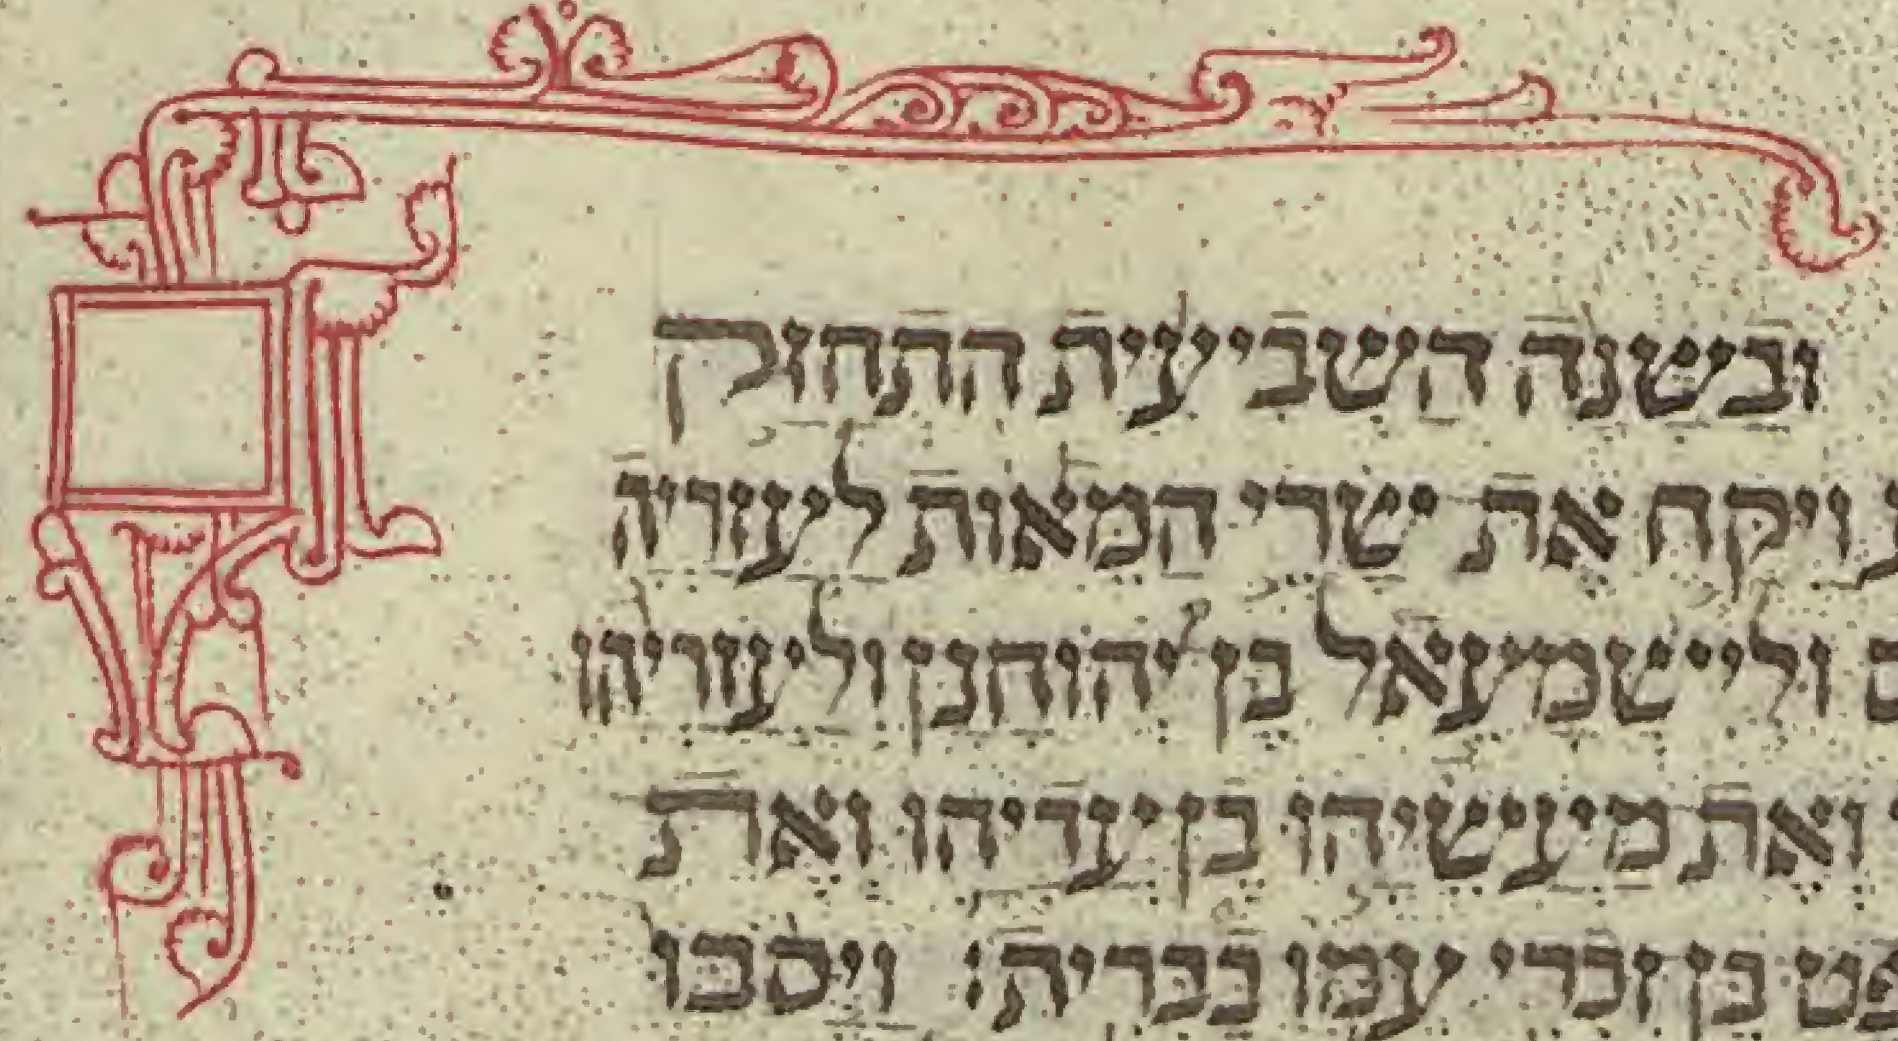 ובשנה השביעית התחזק
ויקח את שרי המאות לעזריה
ולישמעאל בן יהוחנן ולעזריהו
ואת מעשיהו בן עדיהו ואת
בן זכרי עמו בברית׃ ויסבו